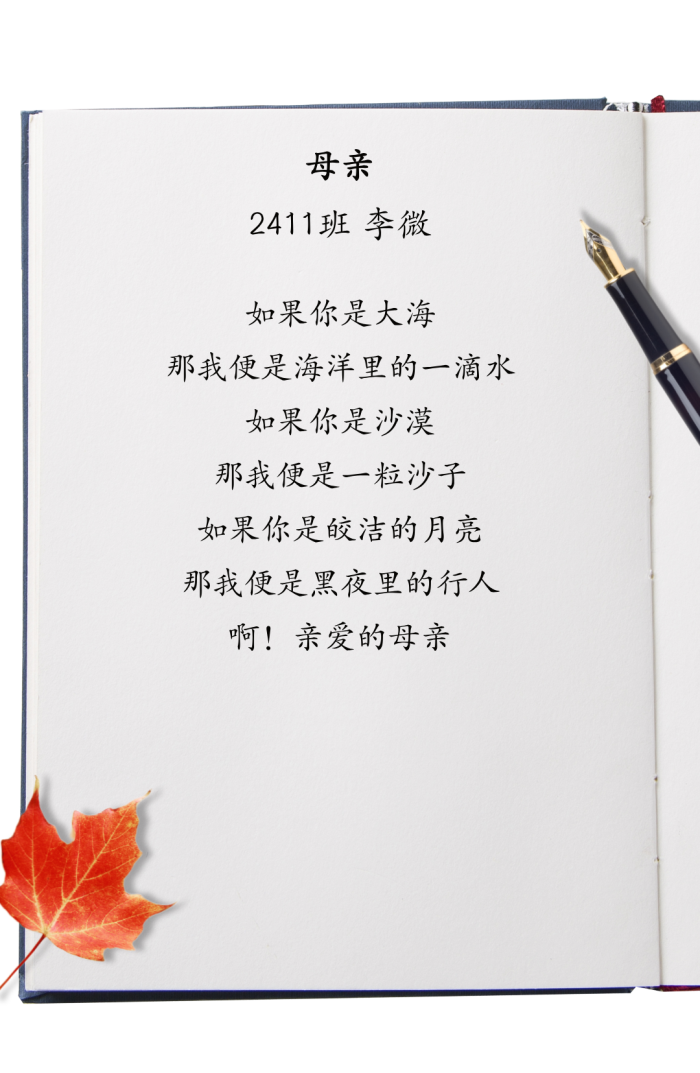 母亲
2411班 李微
如果你是大海
那我便是海洋里的一滴水
如果你是沙漠
那我便是一粒沙子
如果你是皎洁的月亮
那我便是黑夜里的行人
啊！亲爱的母亲